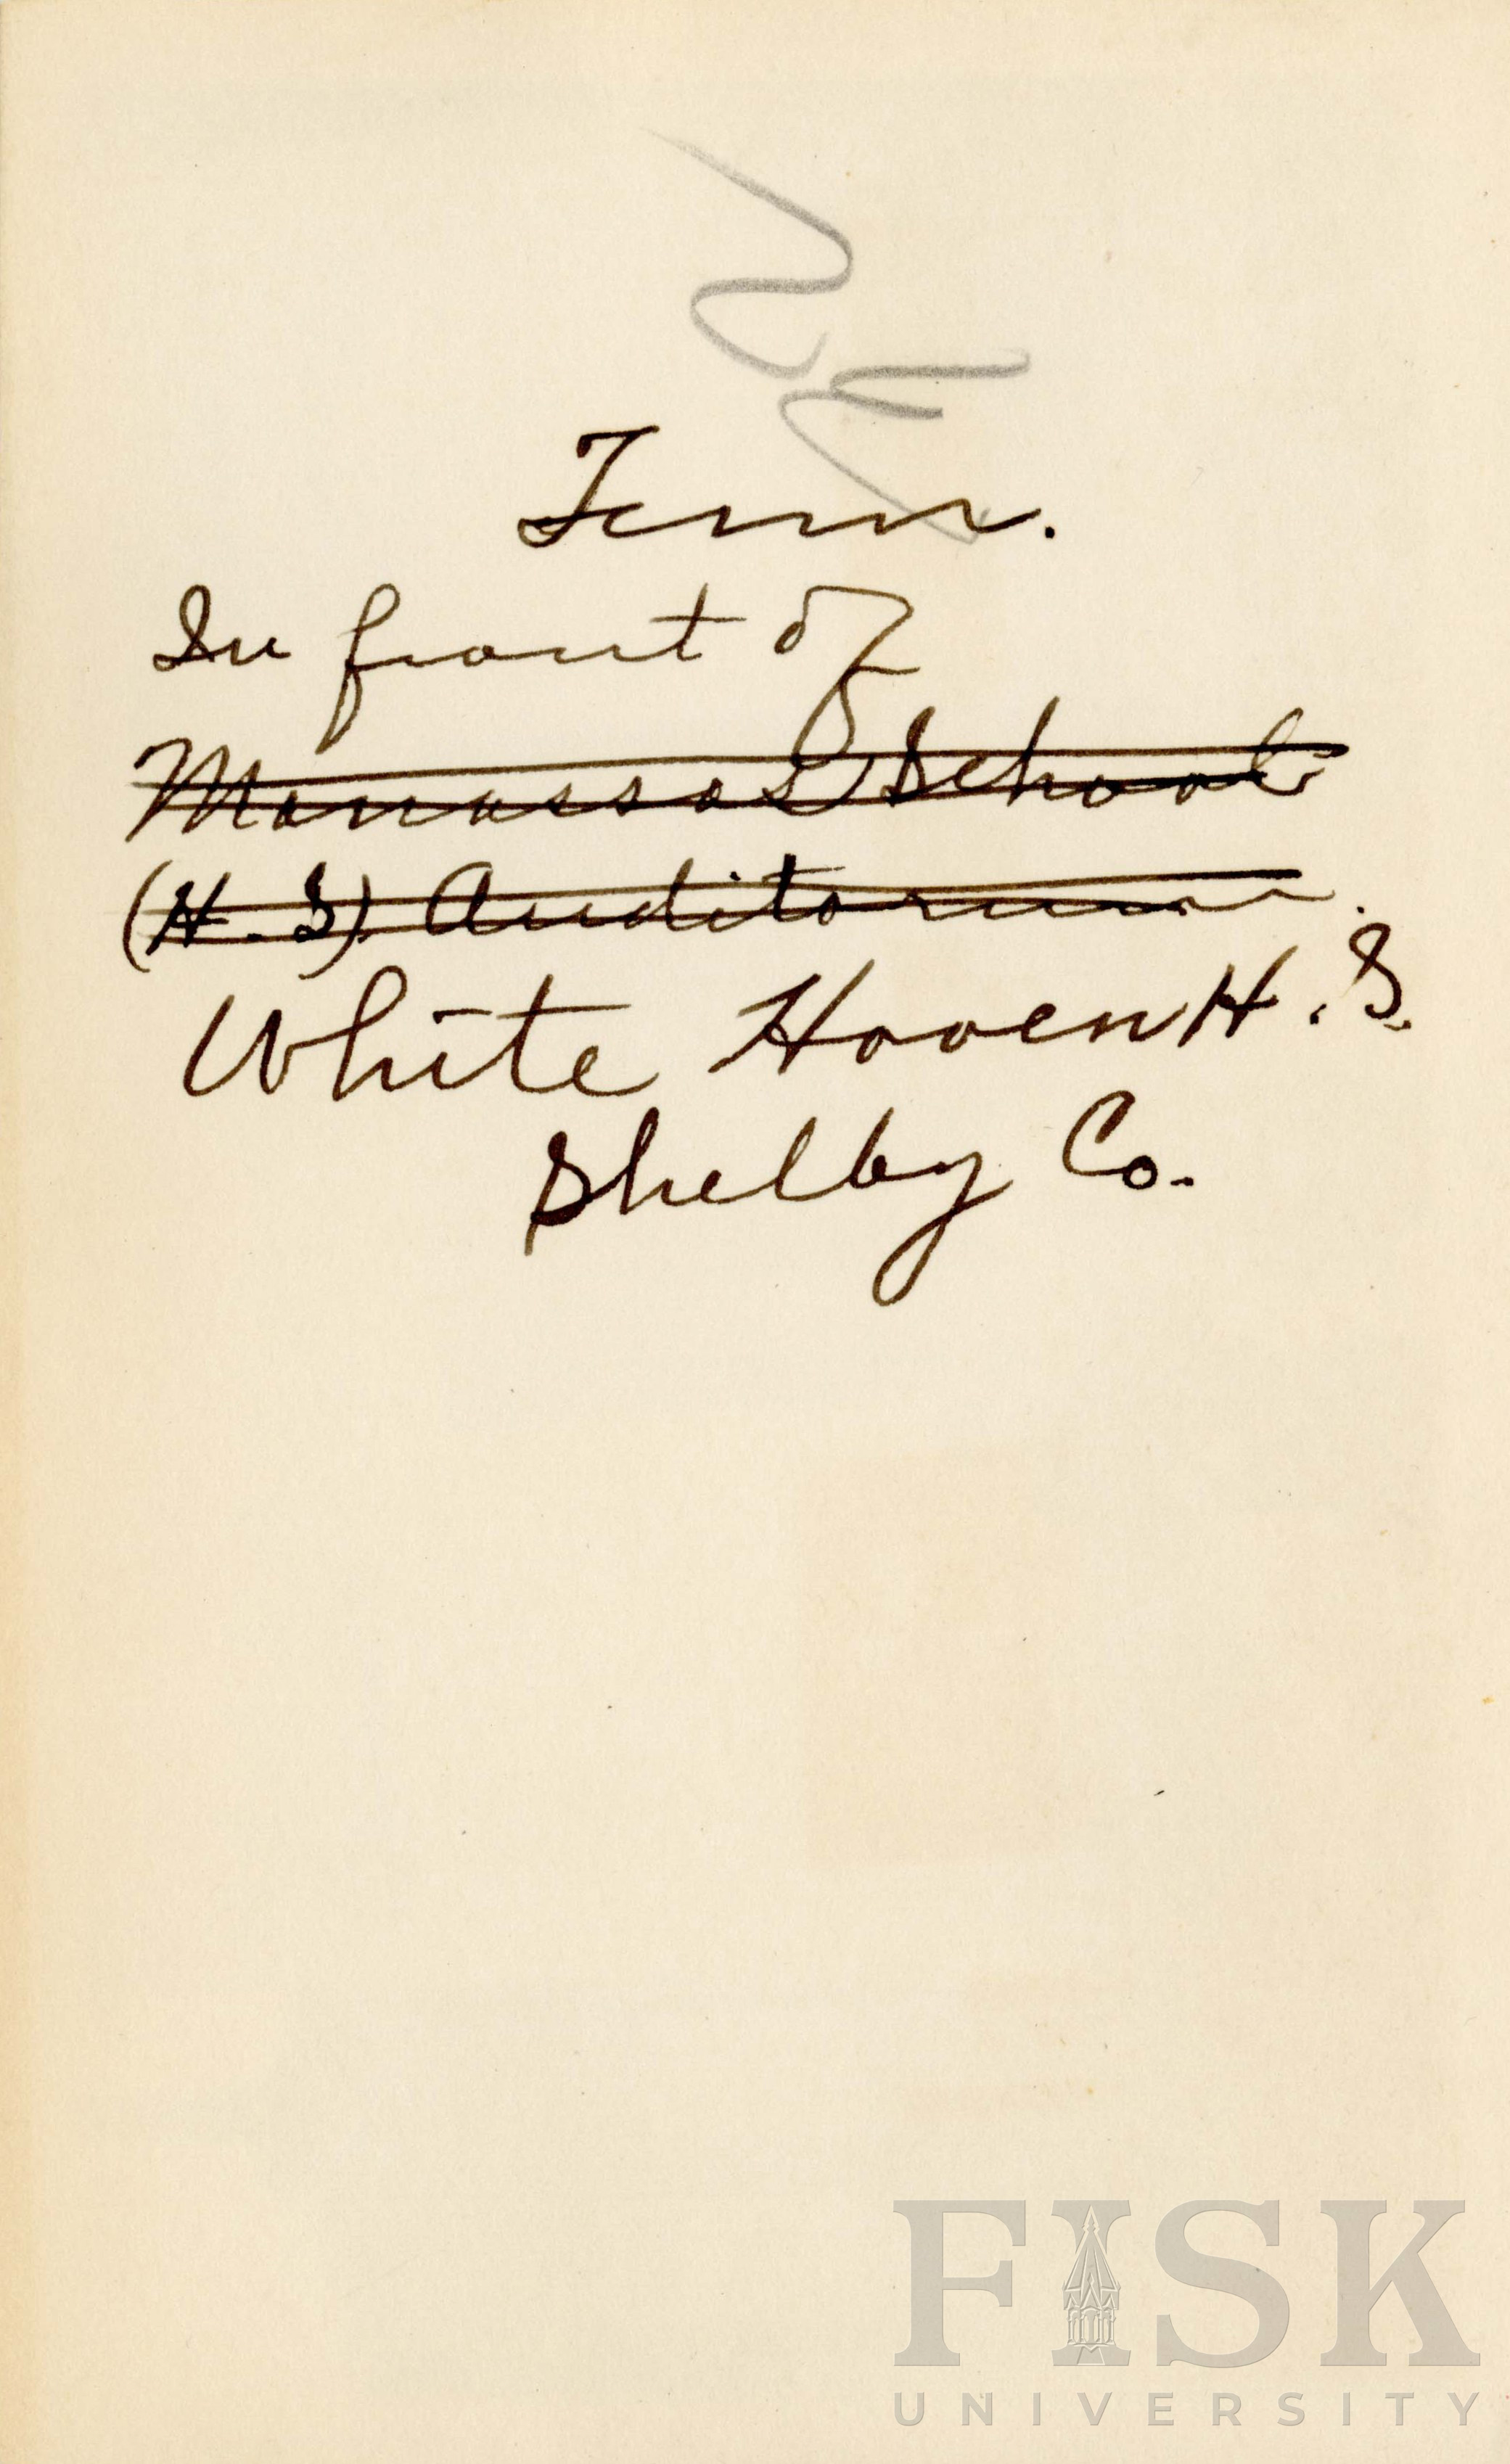 Tenn.
In front of
Manassas School
(H.S). Auditorium.
White Haven H.S.
Shelby Co.
FISK
UNIVERSITY